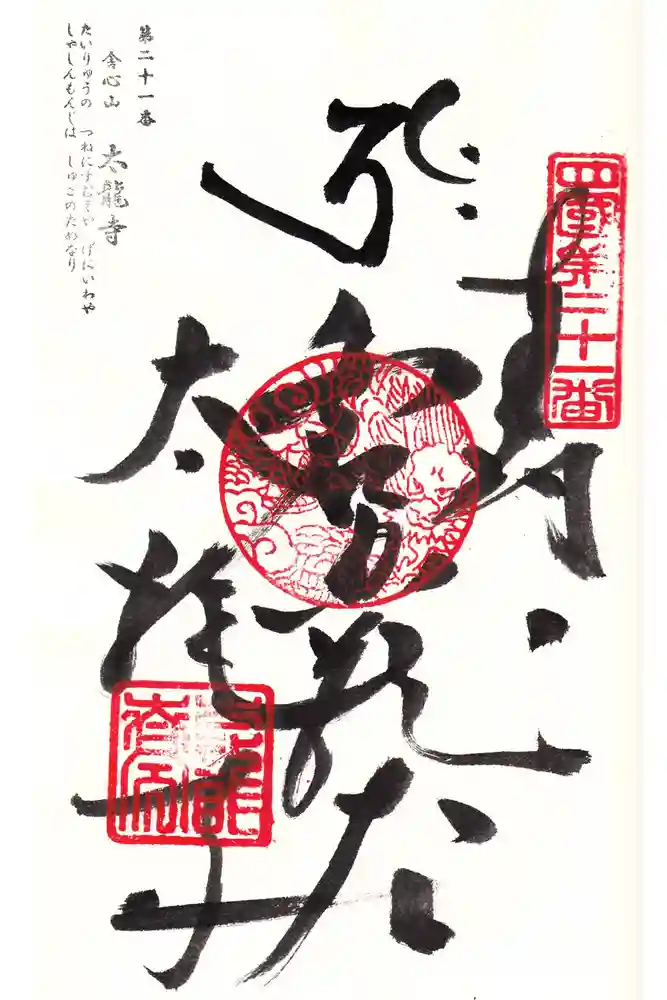 四國第二十一番
奉納
虚空蔵大
太龍寺
第二十一番
舎心山 太龍寺
たいりゅうの つねにすむぞや げにいわや
しゃしんもんじは しゅごのためなり